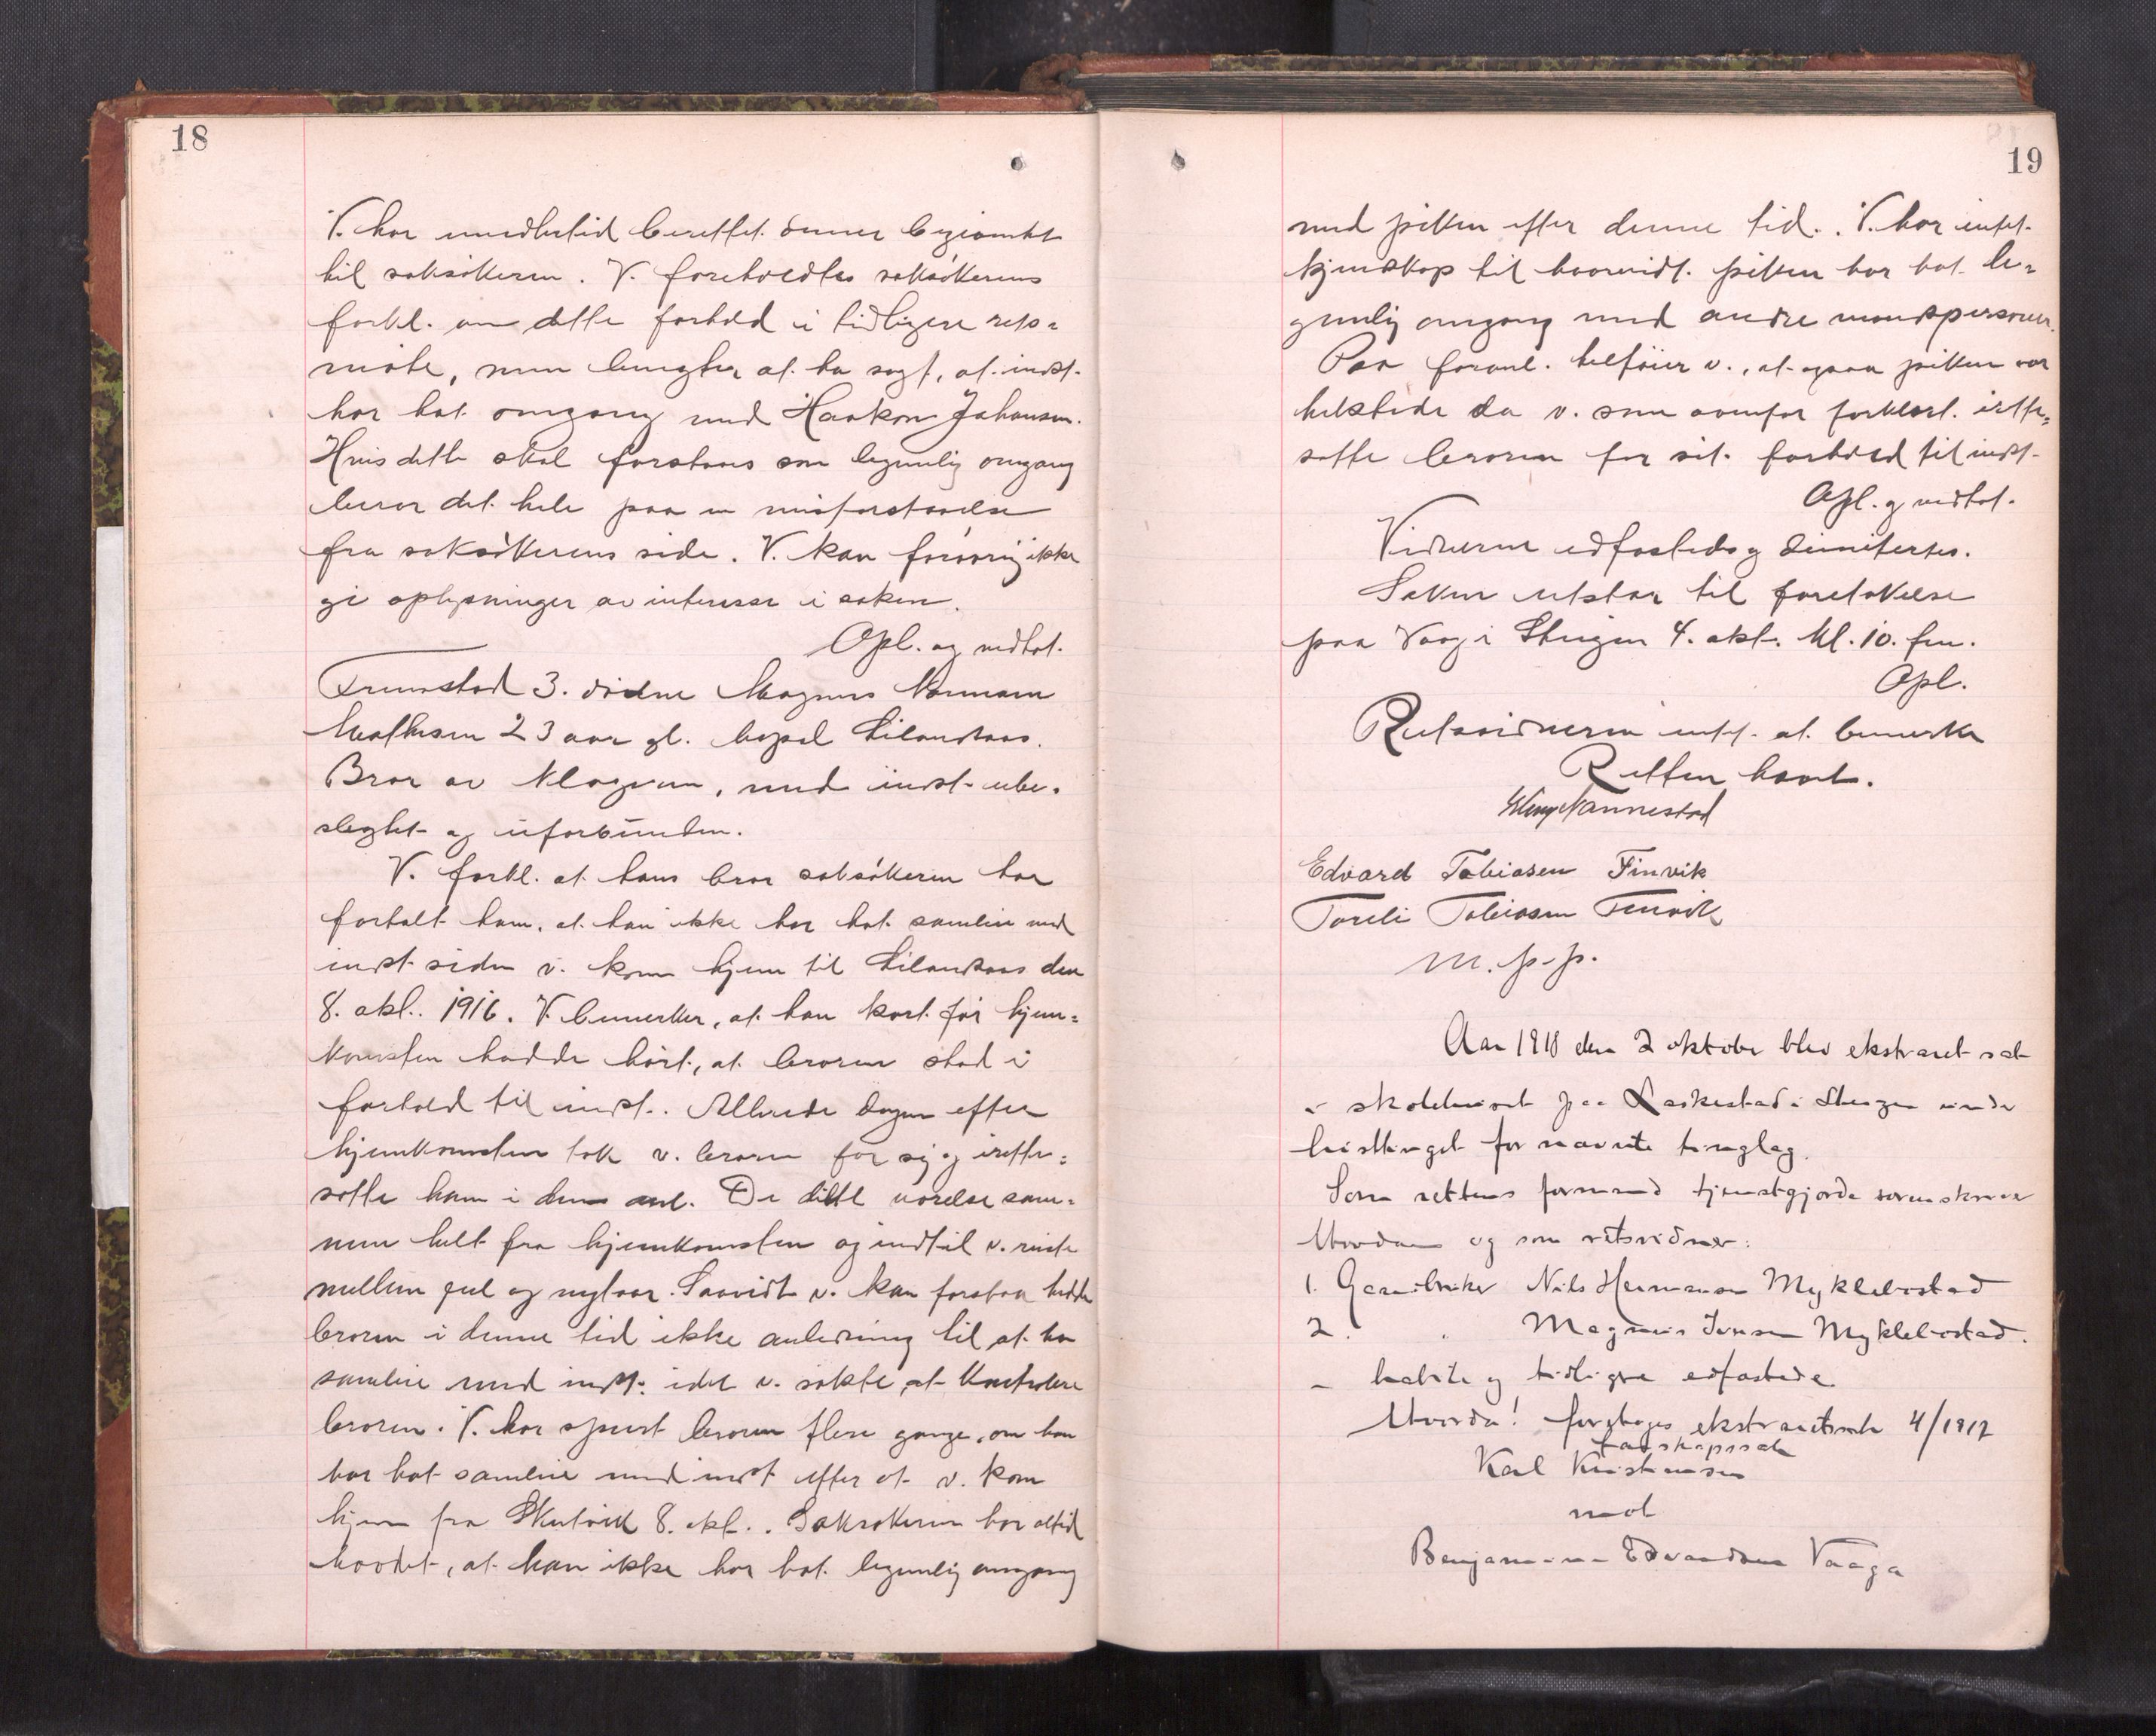 18
V. har imidlertid berettet denne begivenhet
til saksøkeren. V. foreholdtes saksøkerens
forkl. om dette forhold i tidligere rets=
møte, men benegter at ha sagt, at indst.
har hat omgang med Haakon Johansen.
Hvis dette skal forstaaes som legemlig omgang
beror det hele paa en misforstaaelse
fra saksøkerens side. V. kan forøvrig ikke
gi oplysninger av interesse i saken.
Opl. og vedtat.
Fremstod 3. vidne Magnus Normann
Mathisen 23 aar gl. bopæl Lilandsaas.
Bror av klageren, med indst. ube=
slegtet og uforbunden.
V. forkl. at hans bror saksøkeren har
fortalt ham, at han ikke har hat samleie med
indst. siden v. kom hjem til Lilandsaas den
8. okt. 1916. V. bemerker, at han kort før hjem=
komsten hadde hørt, at broren stod i
forhold til indst. Allerede dagen efter
hjemkomsten tok v. broren for sig og irette=
satte ham i den anl. De var sam=
men helt fra hjemkomsten og indtil v. reiste
mellem jul og nytaar. Saavidt v. kan forstaa hadde
broren i denne tid ikke anledning til at ha
samleie med indst. idet v. søkte at kontrolere
broren. V. har spurt broren flere gange, om han
har hat samleie med indst. efter at v. kom
hjem fra Skutvik 8. okt.. Saksøkeren har altid
hævdet, at han ikke har hat legemlig omgang
19
med piken efter denne tid. V. har intet
kjendskap til hvorvidt piken har hat le=
gemlig omgang med andre mandspersoner.
Paa foranl. tilføier v., at ogsaa piken var
tilstede da v. som ovenfor forklart irette=
satte broren for sit forhold til indst.
Opl. og vedtat.
Vidnerne edfæstedes og dimitertes.
Saken utstaar til foretakelse
paa Vaag i Steigen 4. okt. kl. 10. fm.
Opl.
Retsvidnerne intet at bemerke
Retten hævet.
Nannestad
Edvard Tobiasen Finvik
Toreli Tobiasen Finvik
m. p. p.
Aar 1918 den 2 oktober blev ekstraret sat
i skolehuset paa Laskestad i Steigen under
høsttinget for nævnte tinglag.
Som rettens formand tjenstgjorde sorenskriver
Mordan og som retsvidner:
1. Gaardbruker Nils Hermansen Myklebostad
2. " Magnus Jensen Myklebostad.
– habile og tidligere edfæstede.
Hvorda! foretoges ekstraretssak 4/1917
farskapssak
Karl Kristiansen
mot
Benjamine Edvardsen Vaaga